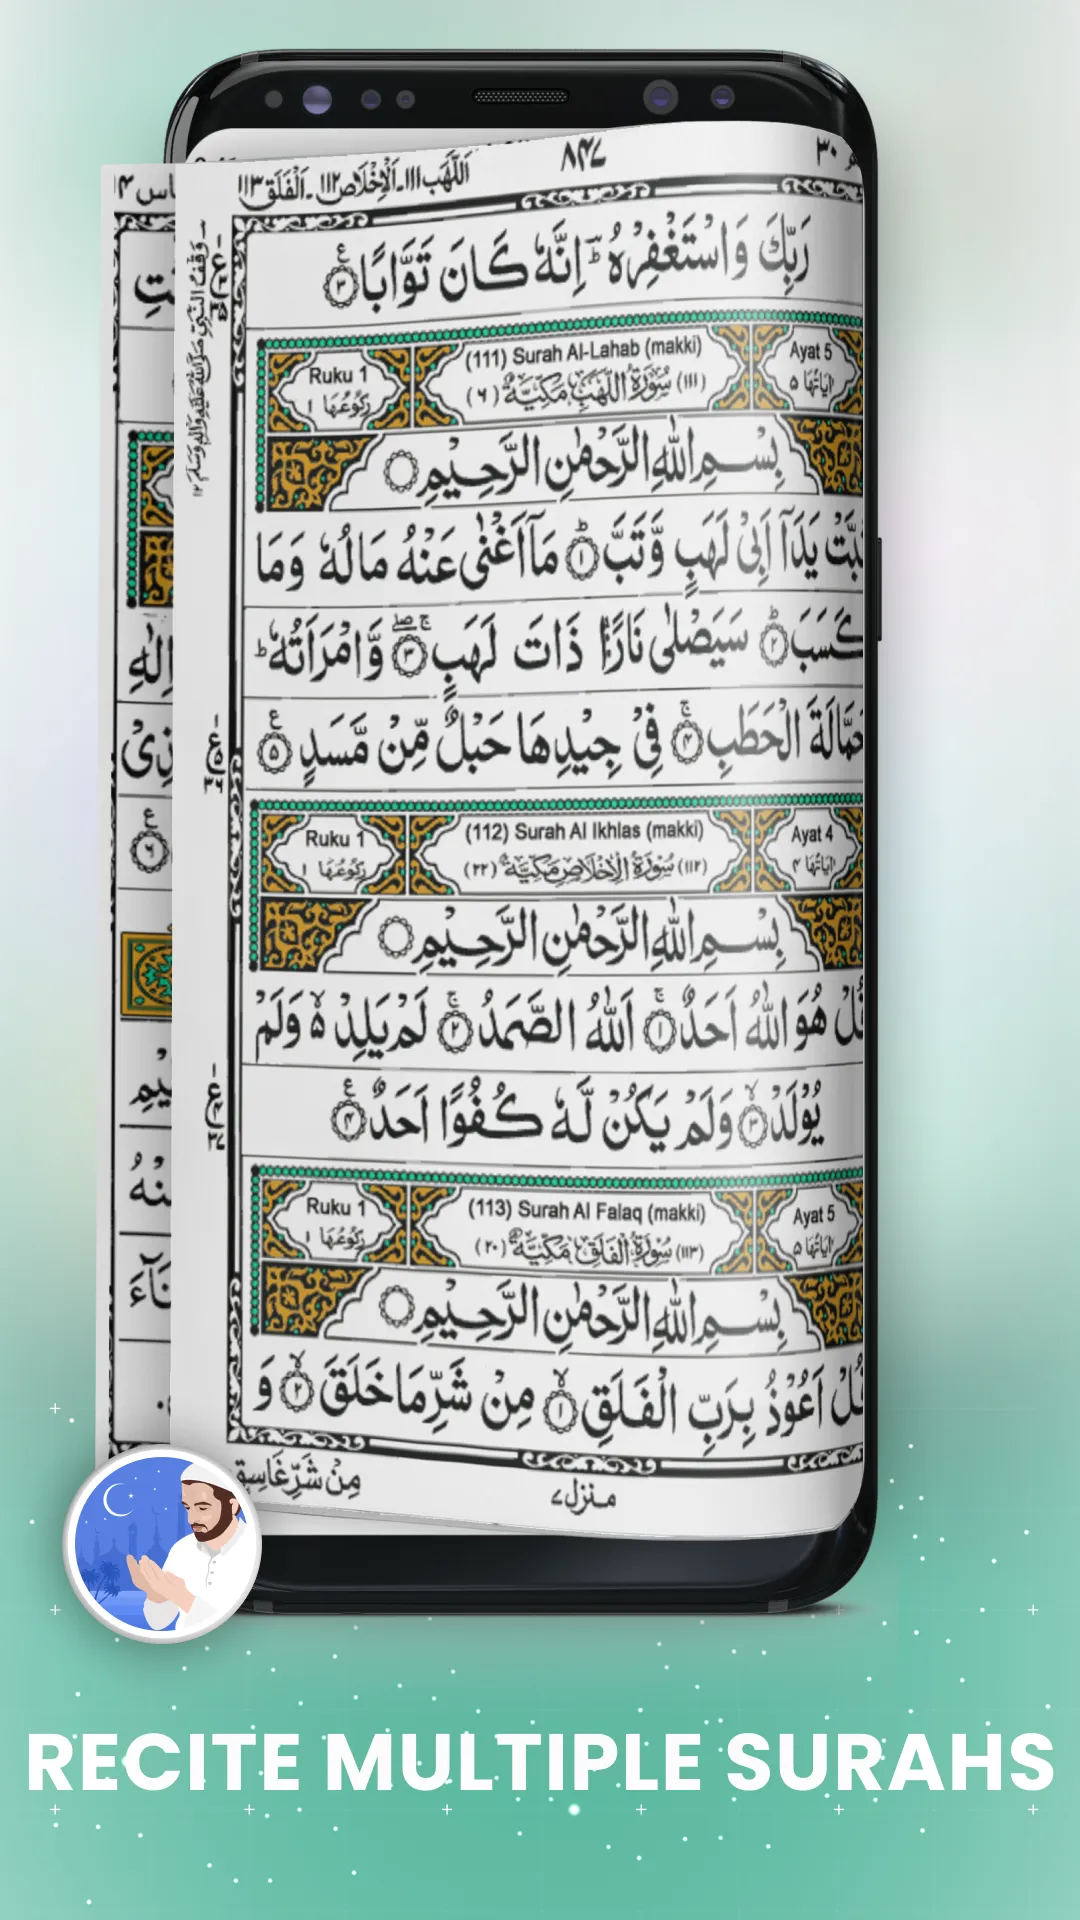 اَللَّهَب۱۱۱۔اَلْاِخْلَاص۱۱۲۔اَلْفَلَق۱۱۳
۸۴۷
۳۰
رَبِّكَ وَاسْتَغْفِرْهُ ؕ اِنَّهٗ كَانَ تَوَّابًا ۳
Ruku 1
(111) Surah Al-Lahab (makki)
Ayat 5
رُكُوْعُهَا ۱
(۱۱۱) سُوْرَةُ اللَّهَبِ مَكِّيَّةٌ (۶)
اٰيَاتُهَا ۵
بِسْمِ اللّٰهِ الرَّحْمٰنِ الرَّحِيْمِ
تَبَّتْ يَدَاۤ اَبِىْ لَهَبٍ وَّتَبَّ ؕ ۱ مَاۤ اَغْنٰى عَنْهُ مَالُهٗ وَمَا
كَسَبَ ؕ ۲ سَيَصْلٰى نَارًا ذَاتَ لَهَبٍ ۳ وَّامْرَاَتُهٗ ؕ
حَمَّالَةَ الْحَطَبِ ۚ ۴ فِىْ جِيْدِهَا حَبْلٌ مِّنْ مَّسَدٍ ۵
Ruku 1
(112) Surah Al Ikhlas (makki)
Ayat 4
رُكُوْعُهَا ۱
(۱۱۲) سُوْرَةُ الْاِخْلَاصِ مَكِّيَّةٌ (۲۲)
اٰيَاتُهَا ۴
بِسْمِ اللّٰهِ الرَّحْمٰنِ الرَّحِيْمِ
قُلْ هُوَ اللّٰهُ اَحَدٌ ۚ ۱ اَللّٰهُ الصَّمَدُ ۚ ۲ لَمْ يَلِدْ ۙ وَلَمْ
يُوْلَدْ ۙ ۳ وَلَمْ يَكُنْ لَّهٗ كُفُوًا اَحَدٌ ۴
Ruku 1
(113) Surah Al Falaq (makki)
Ayat 5
رُكُوْعُهَا ۱
(۱۱۳) سُوْرَةُ الْفَلَقِ مَكِّيَّةٌ (۲۰)
اٰيَاتُهَا ۵
بِسْمِ اللّٰهِ الرَّحْمٰنِ الرَّحِيْمِ
قُلْ اَعُوْذُ بِرَبِّ الْفَلَقِ ۙ ۱ مِنْ شَرِّ مَا خَلَقَ ۙ ۲ وَ
مِنْ شَرِّ غَاسِقٍ
منزل۷
RECITE MULTIPLE SURAHS